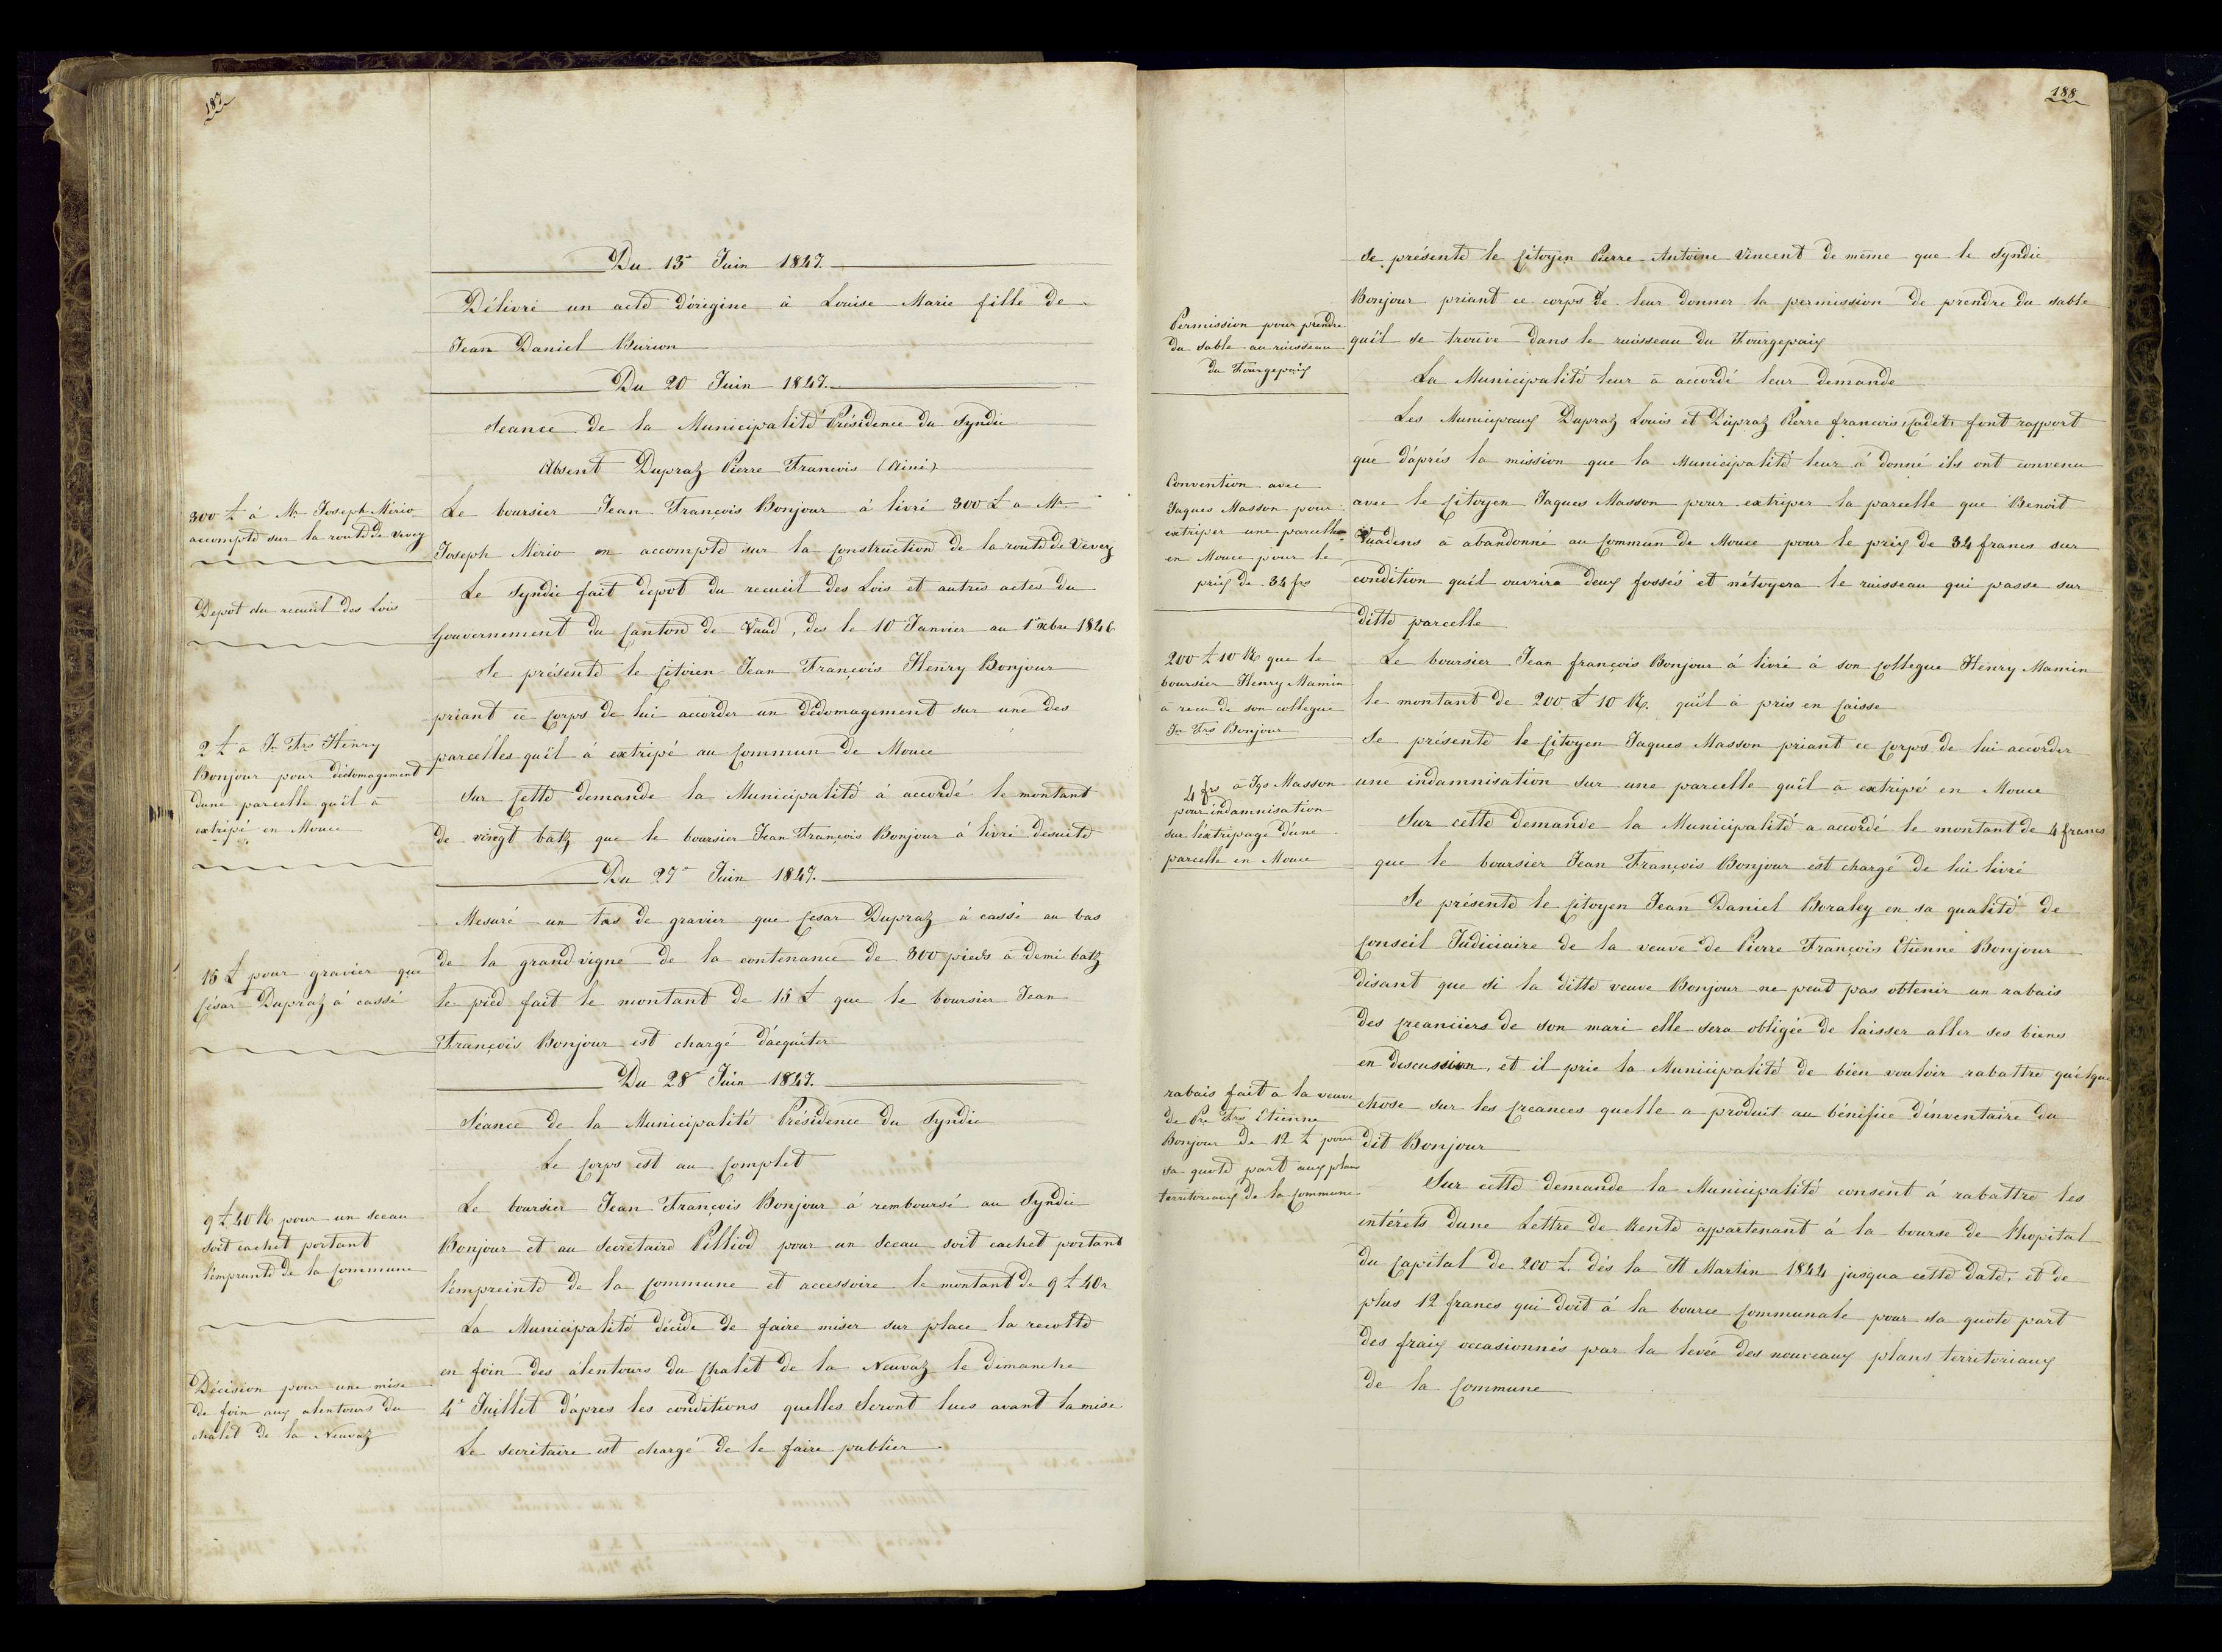 187
Du 13e Juin 1847.
Délivré un acte d'origine à Louise Marie fille de
Jean Daniel Burion
Du 20 Juin 1847.
Séance de la Municipalité Présidence du Syndic
Absent Dupraz Pierre Francois (Ainé)
300 £ à Mr Joseph Mério
accompte sur la route de Vevey
Le boursier Jean François Bonjour à livré 300 £ a Mr
Joseph Mério en accompte sur la construction de la route de Vevey
Depot du recueil des Lois
Le Syndic fait depot du recueil des Lois et autres actes du
Gouvernement du Canton de Vaud, des le 10 Janvier au 1er xbre 1846
Se présente le Citoien Jean François Henry Bonjour
priant ce Corps de lui accorder un dédomagement sur une des
parcelles qu'il à extripé au Commun de Mouce
2 £ à Jn Frs Henry
Bonjour pour dédomagement
dune parcelle qu'il à
extripé en Mouce
Sur Cette demande la Municipalité à accordé le montant
de vingt batz que le boursier Jean François Bonjour à livré desuite
Du 27e Juin 1847.
Mesuré un tas de gravier que Cesar Dupraz à cassé au bas
de la grand vigne de la contenance de 300 pieds à demi batz
le pied fait le montant de 15 £ que le boursier Jean
François Bonjour est chargé d'acquiter
15 £ pour gravier que
César Dupraz à cassé
Du 28e Juin 1847.
Séance de la Municipalité Présidence du Syndic
Le Corps est au Complet
9 £ 40 R pour un sceau
soit cachet portant
l'emprunte de la Commune
Le boursier Jean François Bonjour à remboursé au Syndic
Bonjour et au Secrétaire Pilliod pour un Sceau soit cachet portant
l'empreinte de la Commune et accessoire le montant de 9 £ 40 r
La Municipalité décide de faire miser sur place la recolte
en foin des alentours du Chalet de la Neuvaz le dimanche
4e Juillet d'apres les conditions quelles Seront lues avant la mise
Le secrétaire est chargé de le faire publier
Décision pour une mise
de foin aux alentours du
chalet de la Neuvaz
188
Se présente le Citoyen Pierre Antoine Vincent de même que le Syndic
Bonjour priant ce corps de leur donner la permission de prendre du sable
qu'il se trouve dans le ruisseau du Fourgepaix
Permission pour prendre
du sable au ruisseau
du Fourgepaix
La Municipalité leur à accordé leur demande
Les Municipaux Dupraz Louis et Dupraz Pierre francois, Cadet, font rapport
que d'après la mission que la Municipalité leur à donné ils ont convenu
avec le Citoyen Jaques Masson pour extriper la parcelle que Benoit
Vuadens à abandonné au Commun de Mouce pour le prix de 34 francs sur
condition qu'il ouvrira deux fossés et nétoyera le ruisseau qui passe sur
ditte parcelle
Convention avec
Jaques Masson pour
extriper une parcelle
en Mouce pour le
prix de 34 frs
200 £ 10 R que le
boursier Henry Mamin
à recu de son collegue
Jn Frs Bonjour
Le boursier Jean françois Bonjour à livré à son Collegue Henry Mamin
le montant de 200 £ 10 R. qu'il à pris en Caisse
Se présente le Citoyen Jaques Masson priant ce Corps de lui accorder
une indamnisation sur une parcelle qu'il à extripé en Mouce
4 frs à Jqs Masson
pour indamnisation
sur l'extripage d'une
parcelle en Mouce
Sur cette demande la Municipalité a accordé le montant de 4 francs
que le boursier Jean François Bonjour est chargé de lui livré
Se présente le Citoyen Jean Daniel Boraley en sa qualité de
Conseil Judiciaire de la veuve de Pierre François Etienne Bonjour
disant que si la ditte veuve Bonjour ne peut pas obtenir un rabais
des Creanciers de son mari elle sera obligée de laisser aller ses biens
en discussion, et il prie la Municipalité de bien vouloir rabattre quelque
chose sur les Creances quelle a produit au bénéfice d'inventaire du
dit Bonjour
rabais fait a la veuve
de Pre Frs Etienne
Bonjour de 12 £ pour
sa quote part aux plans
territoriaux de la Commune
Sur cette demande la Municipalité consent à rabattre les
intérets dune Lettre de Rente appartenant à la bourse de l'hopital
du Capital de 200 £. dès la St Martin 1844 jusqua cette date, et de
plus 12 francs qui doit à la bource Communale pour sa quote part
des fraix occasionnés par la levée des nouveaux plans territoriaux
de la Commune